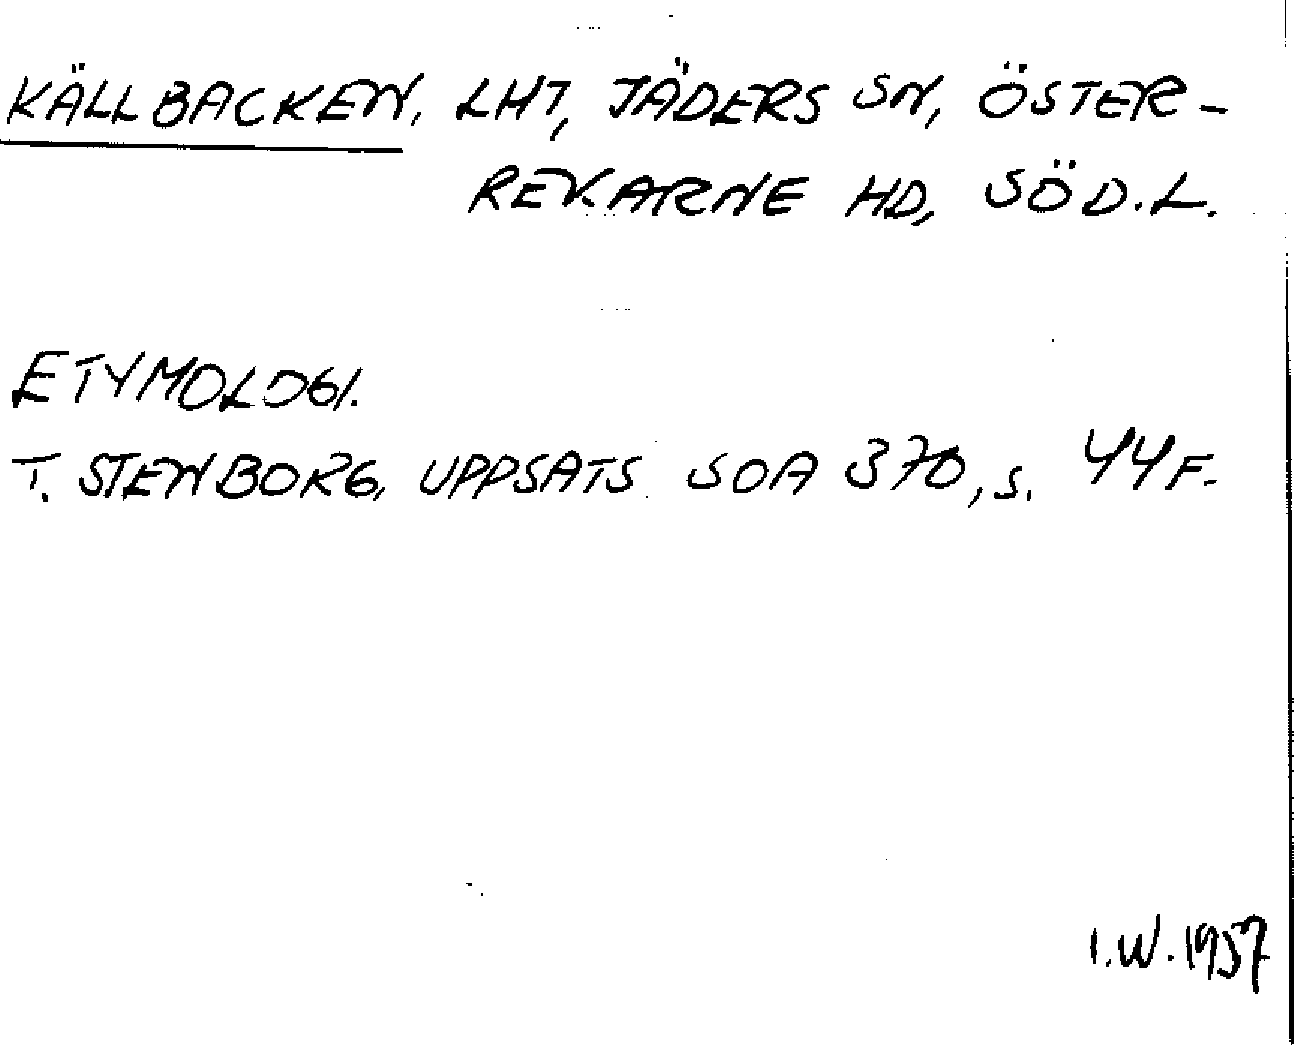 KÄLLBACKEN, LHT, JÄDERS SN, ÖSTER-
REKARNE HD, SÖD.L.
ETYMOLOGI.
T. STENBORG, UPPSATS SOA 370, S. 44F.
I.W. 1957